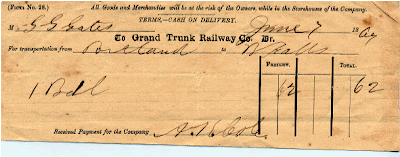 (Form No. 28.) All Goods and Merchandise will be at the risk of the Owners, while in the Storehouses of the Company.
TERMS,—CASH ON DELIVERY.
M G G Gates June 7 186
To Grand Trunk Railway Co. Dr.
For transportation from Portland to W Falls
FREIGHT. TOTAL.
1 Bdl 62 62
Received Payment for the Company